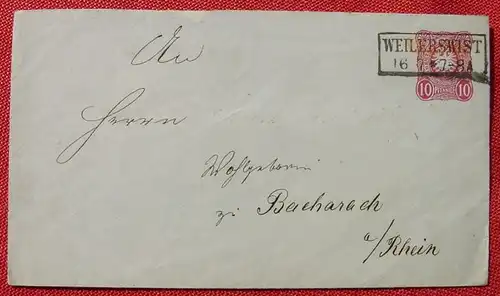 WEILERSWIST
10 10
An
Herrn
Wohlgeboren
zu Bacharach
a/Rhein